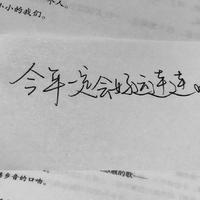 小小的我们。
今年一定会好运连连
乡音的口吻。